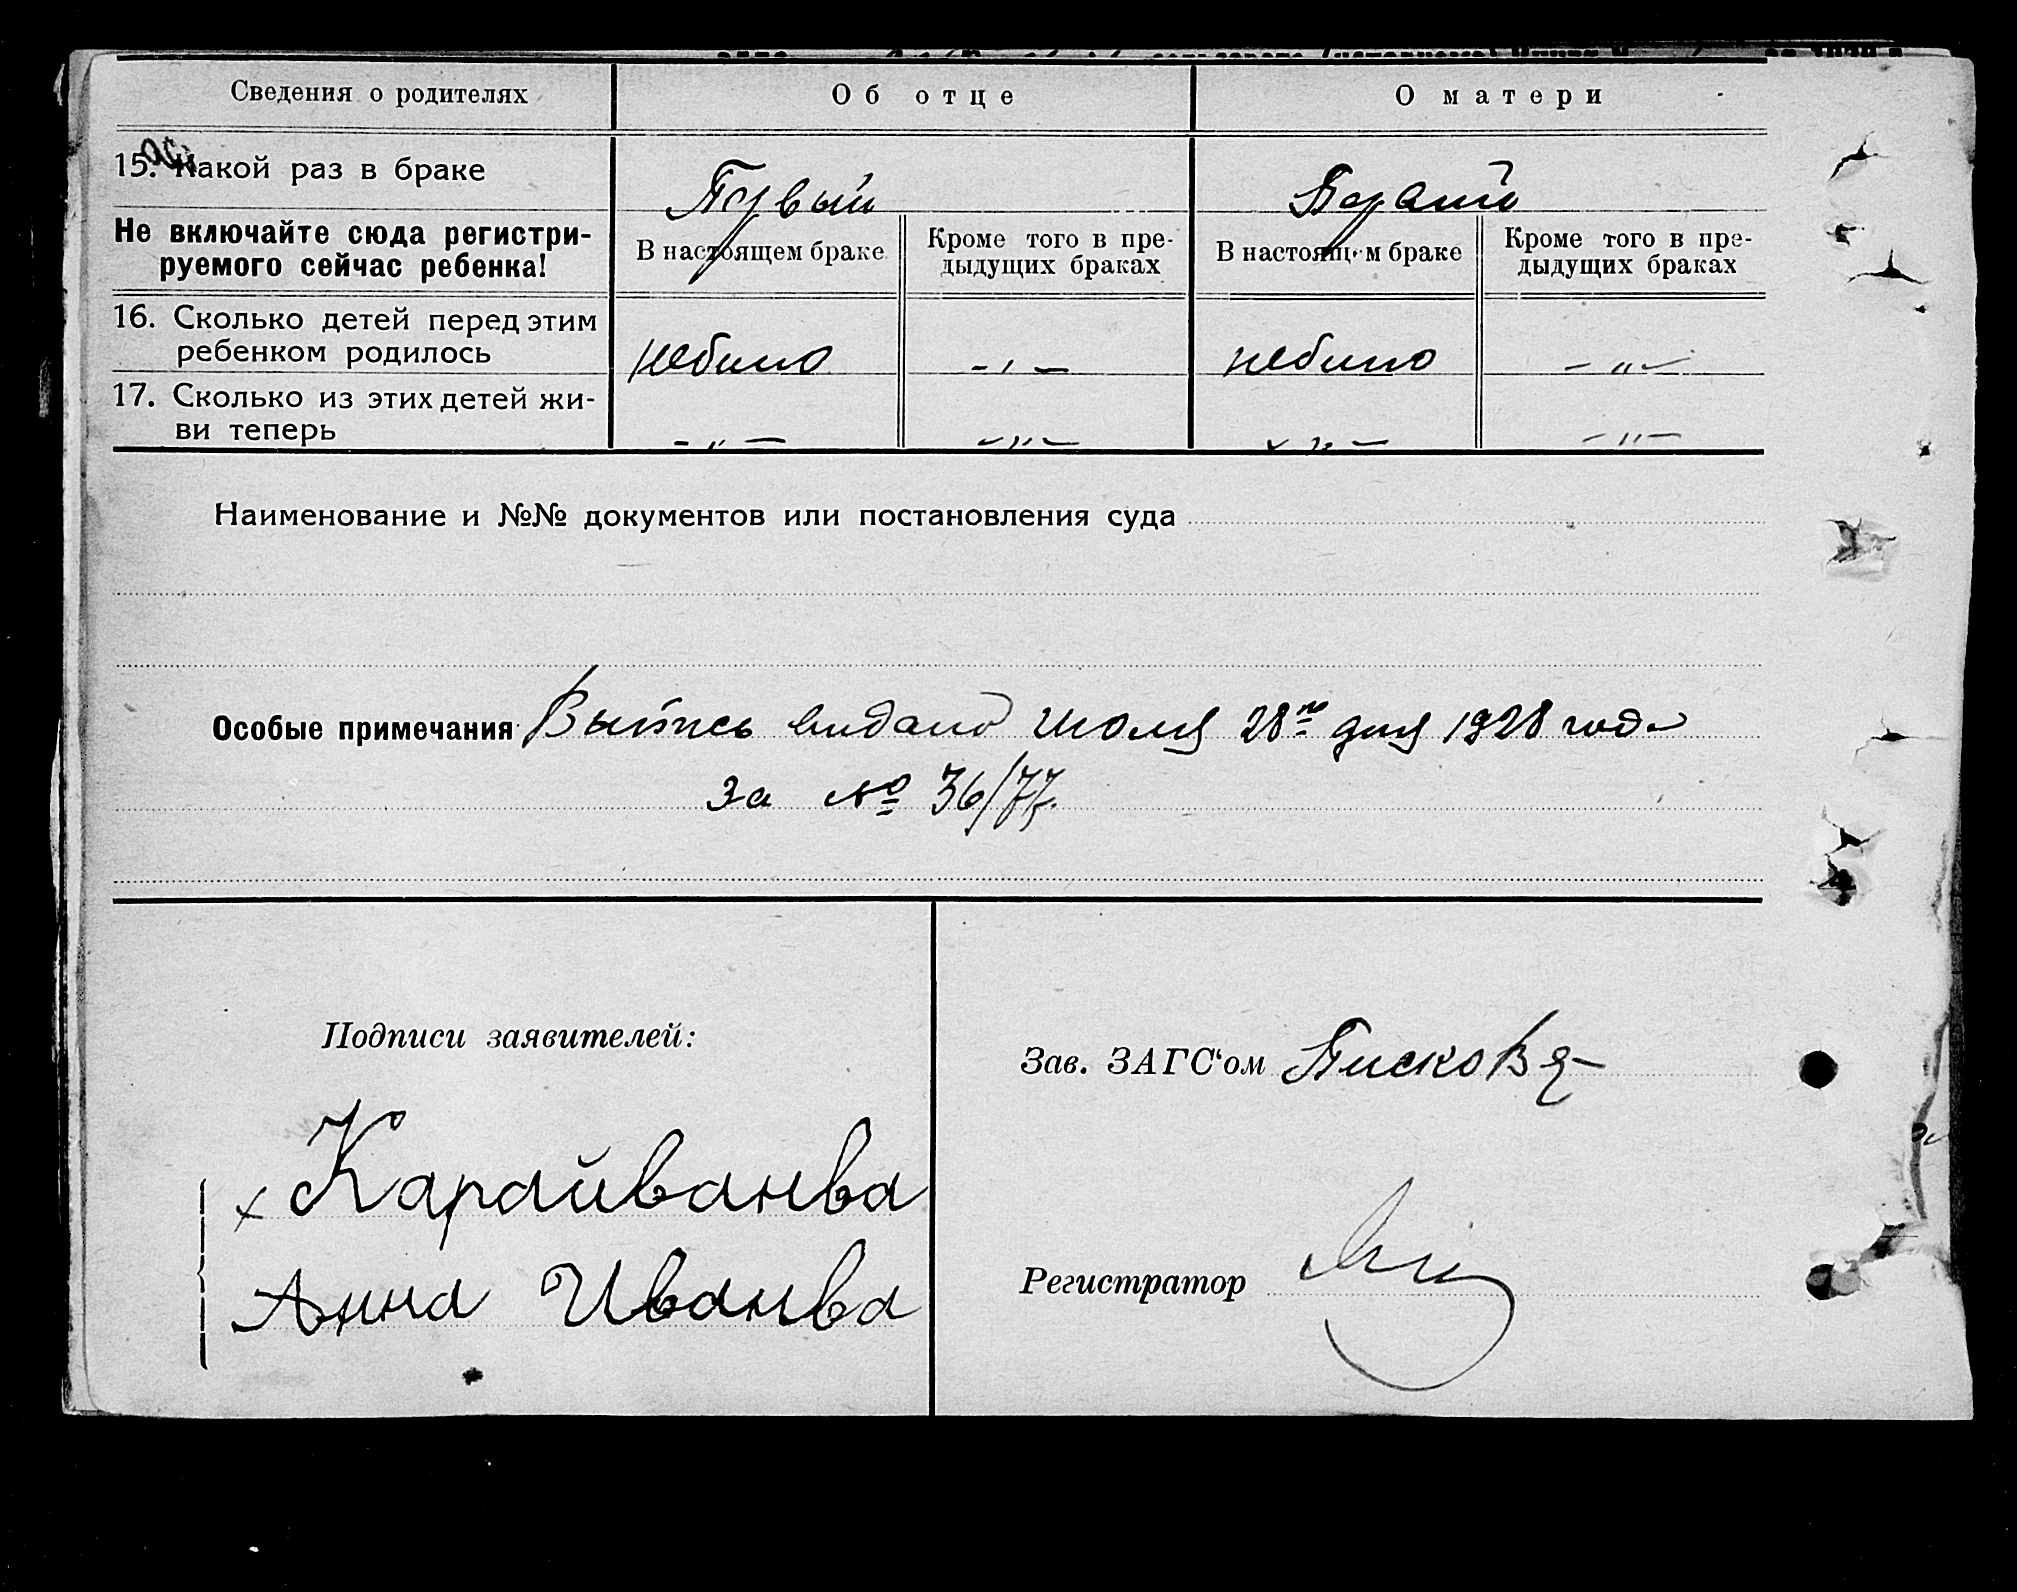 Сведения о родителях Об отце О матери
15. Какой раз в браке Первый Первый
Не включайте сюда регистри-
руемого сейчас ребенка!
В настоящем браке Кроме того в пре-
дыдущих браках
В настоящем браке Кроме того в пре-
дыдущих браках
16. Сколько детей перед этим
ребенком родилось небило -"- небило -"-
17. Сколько из этих детей жи-
ви теперь -"- -"- -"- -"-
Наименование и №№ документов или постановления суда
Особые примечания Выпись видано июля 28го дня 1928 года
за № 36/77.
Подписи заявителей:
Зав. ЗАГС'ом
х Карайванва
Анна Иванва
Регистратор